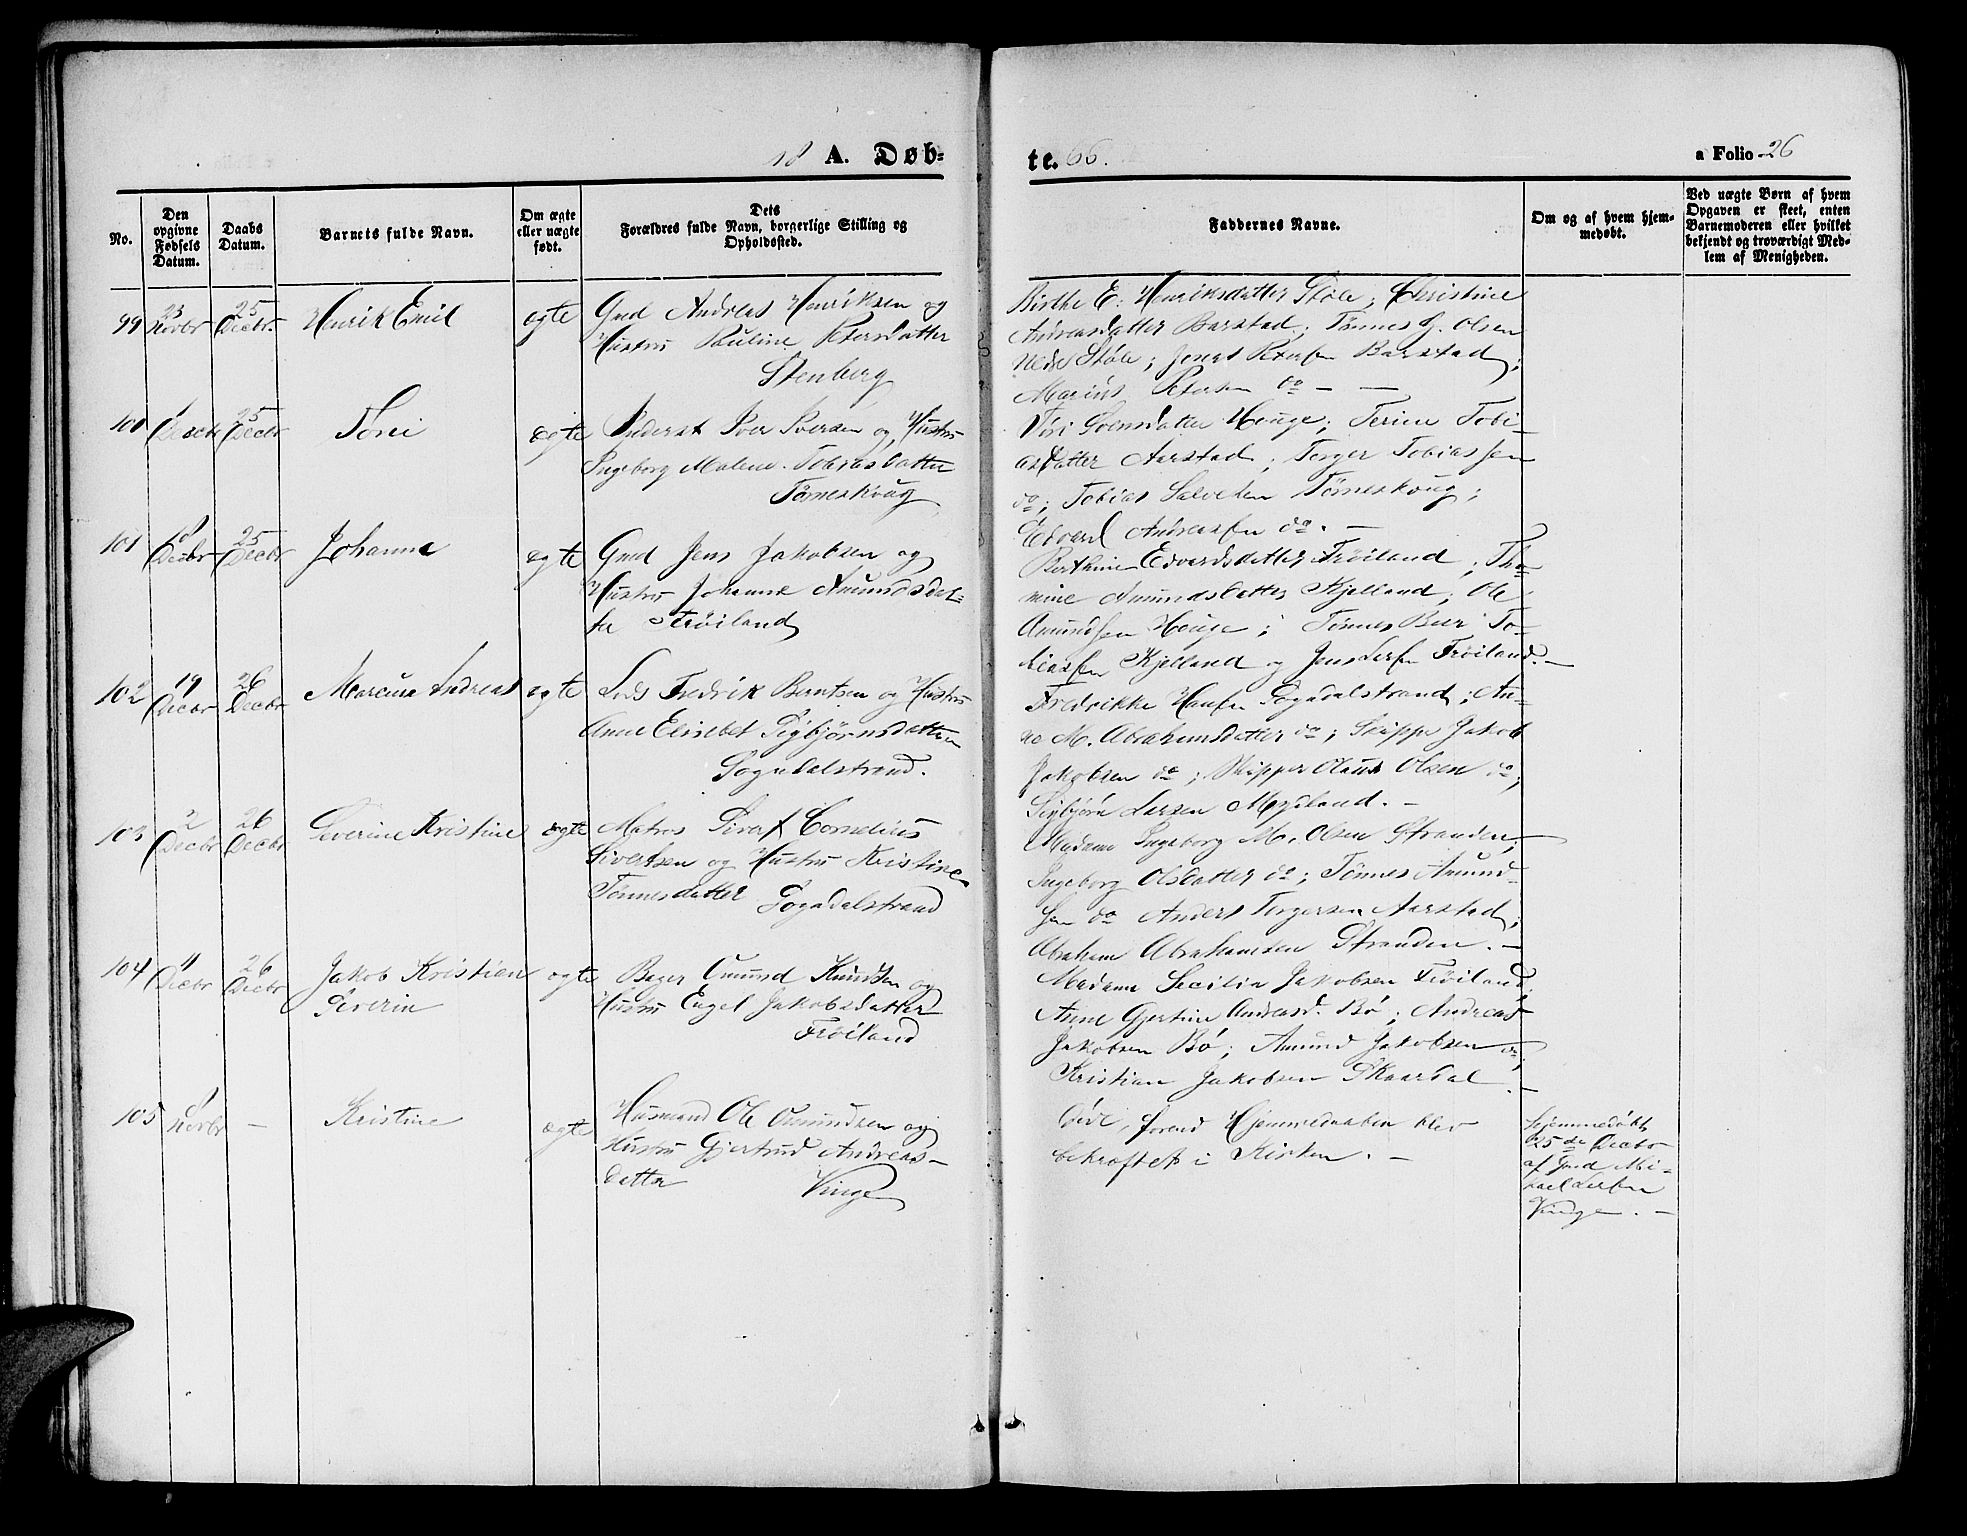 18 A. Døb-
te. 66.
a Folio 26
No.
Den
opgivne
Fødsels
Datum.
Daabs
Datum.
Barnets fulde Navn.
Om ægte
eller uægte
født.
Dets
Forældres fulde Navn, borgerlige Stilling og
Opholdssted.
Faddernes Navne.
Om og af hvem hjem-
medøbt.
Ved uægte Børn af hvem
Opgaven er skeet, enten
Barnemoderen eller hvilket
bekjendt og troværdigt Med-
lem af Menigheden.
99
23
Novbr
25
Decbr.
Henrik Emil
ægte
Gmd Andreas Henriksen og
Hustru Pauline Petersdatter
Stenberg
Birthe E. Henriksdatter Støle; Christine
Andreasdatter Barstad; Tønnes G. Olsen
Nedre Støle; Jonas Petersen Barstad;
Marius Petersen do — —
100
1
Decbr
25
Decbr
Toni
ægte
Inderst Iver Iversen og Hustru
Ingeborg Malene Tobiasdatter
Tørneskoug
Svensdatter Houge; Terine Tobi-
asdatter Aarstad; Torger Tobiassen
do; Tobias Salvesen Tørneskoug;
Edvard Andreassen do. —
101
18
Decbr
25
Decbr
Johanna
ægte
Gmd Jens Jakobsen og
Hustru Johanna Amundsdat-
ter Frøiland
Berthine Edvardsdatter Frøiland; Tho-
mine Amundsdatter Kjelland; Ole
Amundsen Houge; Tønnes Beer To-
biassen Kjelland og Jens Larsen Frøiland. —
102
19
Decbr
26
Decbr
Marcus Andreas
ægte
Lods Fredrik Berntsen og Hustru
Anne Elisebet Sigbjørnsdatter
Sogndalstrand.
Fredrikke Hansen Sogndalstrand; An-
ne M. Abrahamsdatter do; Skipper Jakob
Jakobsen do; Skipper Olaus Olsen do;
Sigbjørn Larsen Mydland. —
103
2
Decbr
26
Decbr
Severine Kristine
ægte
Matros Sivert Cornelius
Sivertsen og Hustru Kristine
Tønnesdatter Sogndalstrand
Madame Ingeborg M. Olsen Stranden;
Ingeborg Olsdatter do; Tønnes Amund-
sen do Anders Torgersen Aarstad;
Abraham Abrahamsen Stranden. —
104
4
Decbr
26
Decbr
Jakob Kristian
Severin
ægte
Bager Omund Knudsen og
Hustru Engel Jakobsdatter
Frøiland
Madame Secilia Jakobsen Frøiland;
Anne Gjertine Andreasd. Bø; Andreas
Jakobsen Bø; Amund Jakobsen do;
Kristian Jakobsen Skaardal. —
105
8
Novbr
—
Kristine
ægte
Husmand Ole Omundsen og
Hustru Gjertrud Andreas-
datter Vinge
Døde, forend Hjemmedaaben blev
bekræftet i Kirken. —
Hjemmedøbt
25de Decbr
af Gmd Mi-
kael Larsen
Vinge. —